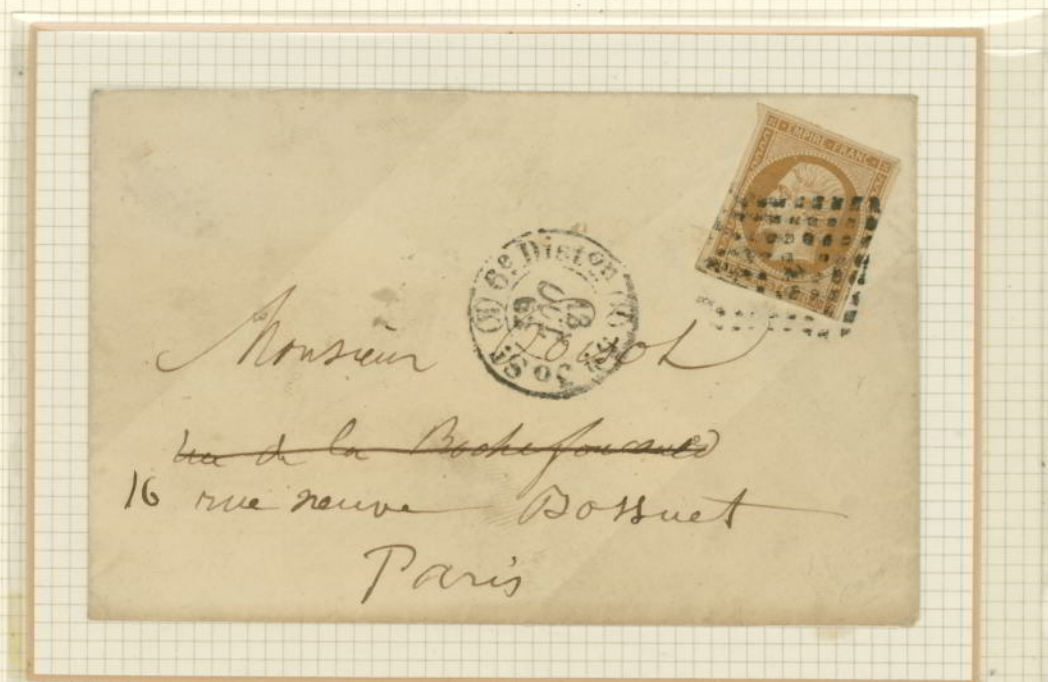 EMPIRE FRANC
6e Diston
Monsieur
rue de la Rochefoucauld
16 rue neuve Bossuet
Paris